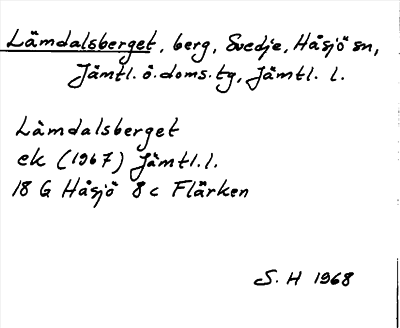 Lämdalsberget, berg, Svedje, Håsjö sn,
Jämtl. ö. doms. tg, Jämtl. l.
Lämdalsberget
ek (1967) Jämtl. l.
18 G Håsjö 8 c Flärken
S. H 1968